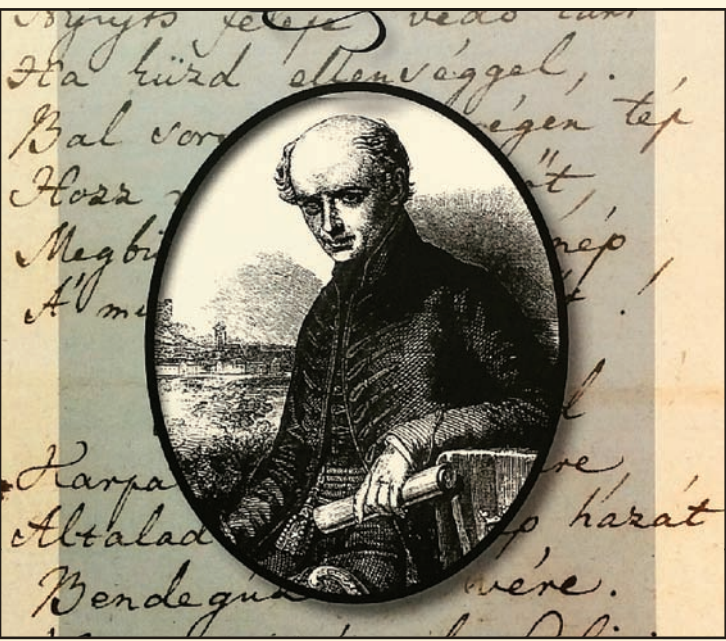 Nyújts feléje védő kart
Ha küzd ellenséggel,
Bal sor égen tép
Hozz őt,
Megbű nép
A' mu t !
l
Karpa re
Altalad p hazát
Bendegú vére.